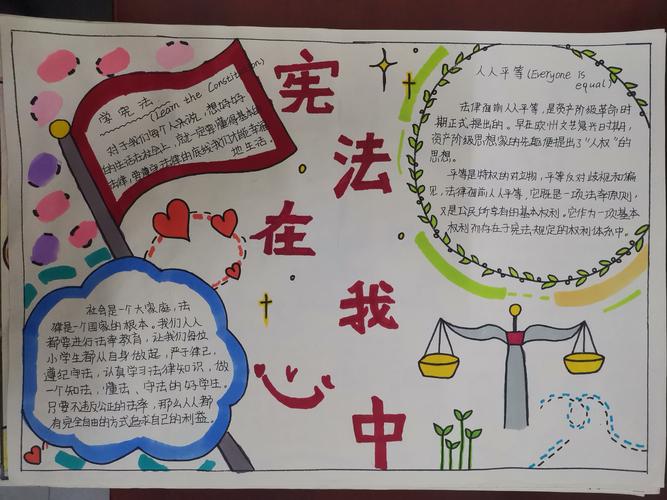 宪法在我心中
学宪法
(Learn the Constitution)
对于我们每个人来说，想好好
的生活在社会上，就一定要懂得基本的
法律，要遵守法律的底线我们才能幸福
地生活。
人人平等(Everyone is
equal)
法律面前人人平等，是资产阶级革命时
期正式提出的。早在欧州文艺复兴时期，
资产阶级思想家的先驱便提出了“人权”的
思想。
平等是特权的对立物，平等反对歧视和偏
见，法律面前人人平等，它既是一项法率原则，
又是公民所享有的基本权利。它作为一项基本
权利而存在于宪法规定的权利体系中。
社会是一个大家庭，法
律是一个国家的根本。我们人人
都要进行法率教育，让我们每位
小学生都从自身做起，严于律己，
遵纪守法，认真学习法律知识，做
一个知法，懂法、守法的好学生。
只要不违反公正的法率，那么人人都
有完全自由的方式追求自己的利益。